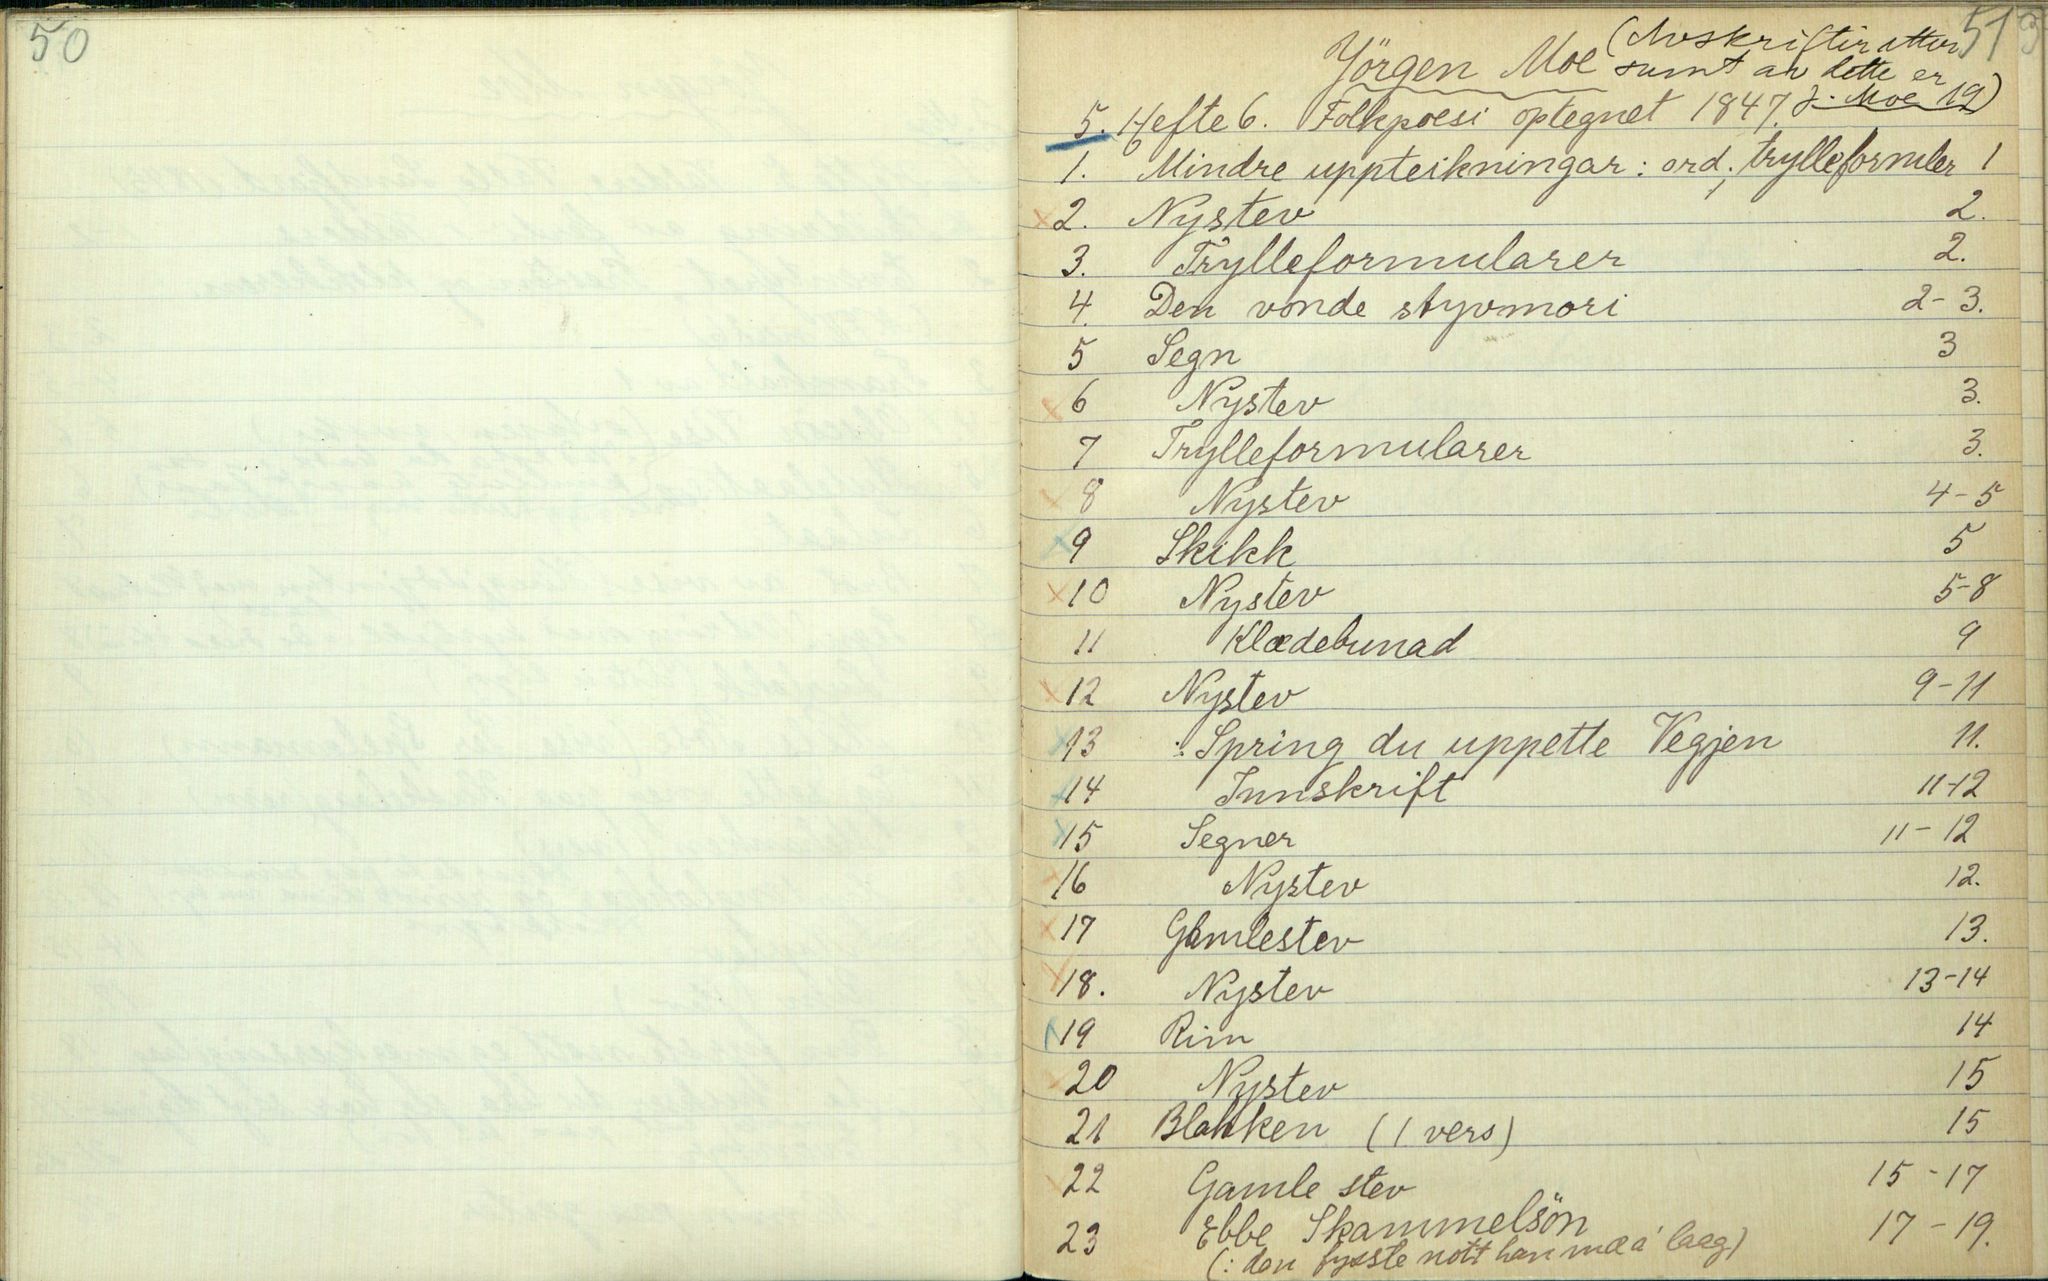 50
51
Jörgen Moe (Avskriftir etter
sumt av dette er
J. Moe 19)
5. Hefte 6. Folkpoesi optegnet 1847.
1. Mindre uppteikningar: ord; trylleformler 1
x 2. Nystev 2.
3. Trylleformularer 2.
4. Den vonde styvmori 2-3.
5 Segn 3
x 6 Nystev 3.
7 Trylleformularer 3.
x 8 Nystev 4-5
x 9 Skikk 5
x 10 Nystev 5-8
11 Klædebunad 9
x 12 Nystev 9-11
x 13 : Spring du uppette Vegjen 11.
x 14 Innskrift 11-12
x 15 Segner 11-12
x 16 Nystev 12.
x 17 Gamlestev 13.
x 18. Nystev 13-14
19 Rim 14
20 Nystev 15
21 Blakken (1 vers) 15
22 Gamle stev 15-17
23 Ebbe Skammelsön 17-19.
(: den fysste nott han